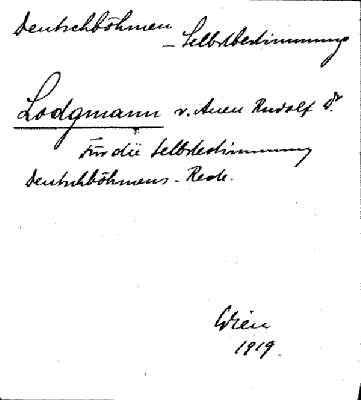 Deutschböhmen
- Selbstbestimmung
Lodgmann v. Auen Rudolf Dr.
Für die Selbstbestimmung
Deutschböhmens. Rede.
Wien
1919.